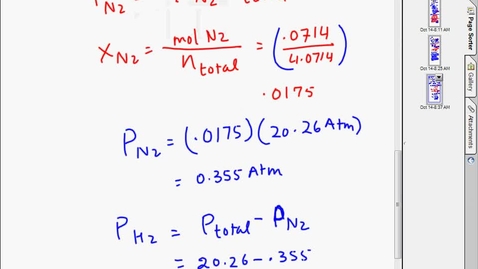 P N2 = X N2 n tota
X N2 = mol N2 / n total = (.0714 / 4.0714)
.0175
P N2 = (.0175)(20.26 Atm)
= 0.355 Atm
P H2 = P total - P N2
= 20.26 - .355
Oct 14-8:11 AM
Oct 14-8:25 AM
Oct 14-8:37 AM
Page Sorter
Gallery
Attachments